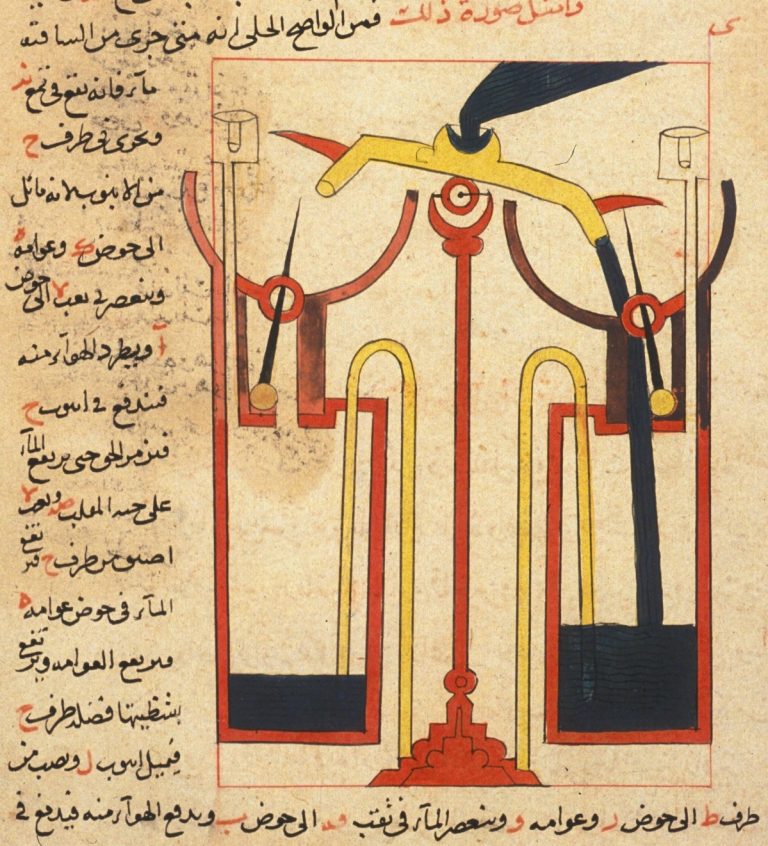 وامثل صورة ذلك فمن الواضح الجلي انه متى جرى من الساقية
ماء فانه يقع في قمع
ويجرى في طرف ح
من الانبوب لانه مائل
الى حوض ك وعوامة ه
وينعصر في ثقب لا الى حوض
آ ويطرد الهواء منه
فيندفع في انبوب ح
فيزمر حتى يرتفع الماء
على وثقب
اضيق من طرف ح فيرتفع
الماء في حوض عوامة ه
فيرتفع العوامة وترتفع
بشظيتها فضلة طرف ح
فيميل انبوب ل ويصب من
طرف ط الى حوض ر وعوامة و وينعصر الماء في ثقب الى حوض ب ويدفع الهواء منه فيدفع في